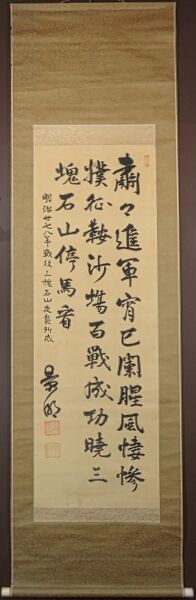 肅々進軍宵已闌腥風悽惨
撲征鞍沙場百戰成功曉三
塊石山停馬看
明治卅七八年戰役三塊石山夜襲所感
景明